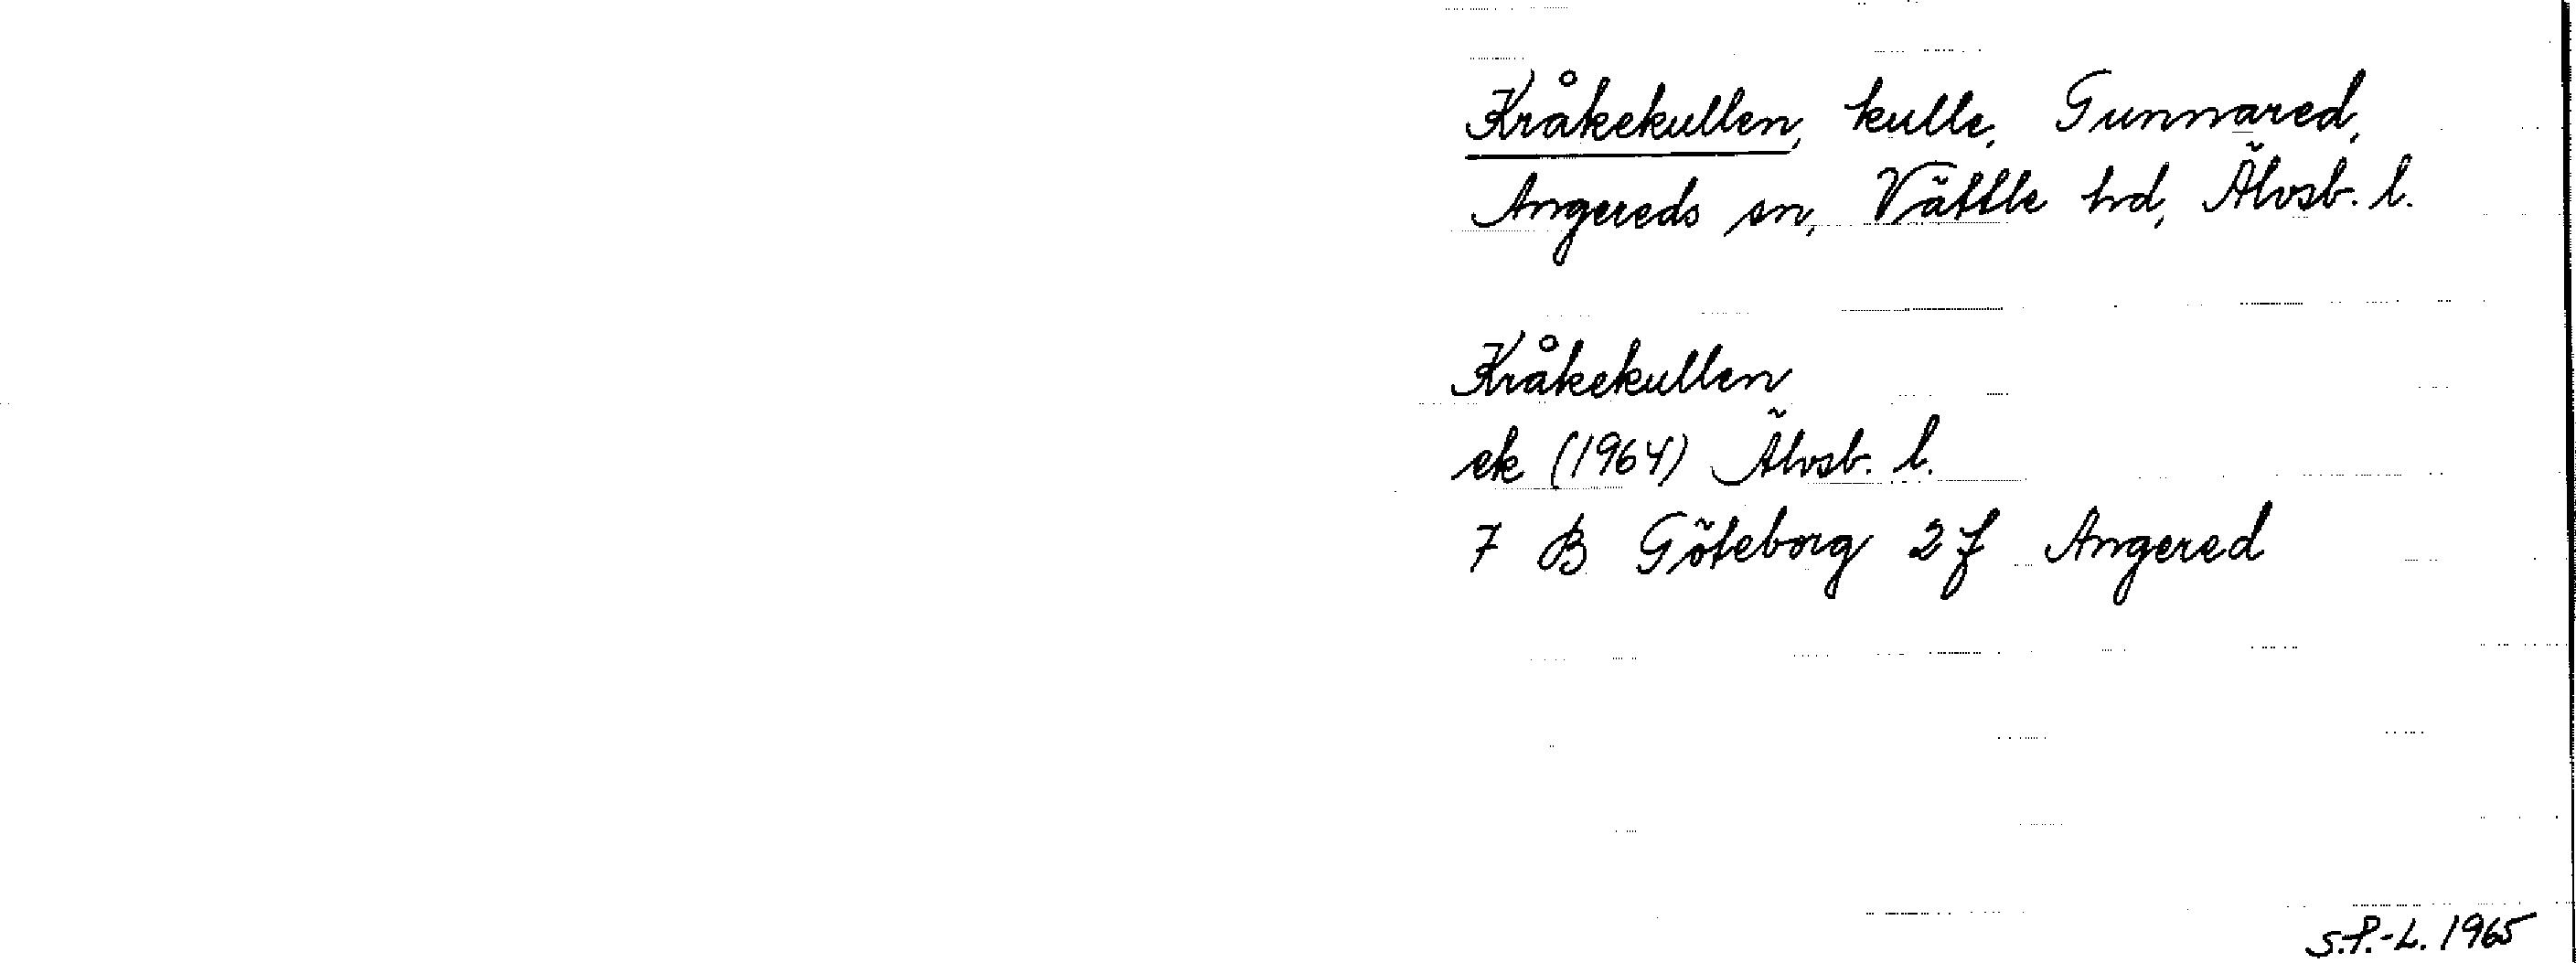 Kråkekullen, kulle, Gunnared,
Angereds sn, Vättle hd, Älvsb. l.
Kråkekullen
ek (1964) Älvsb. l.
7 B Göteborg 2 f Angered
S.P.-L. 1965